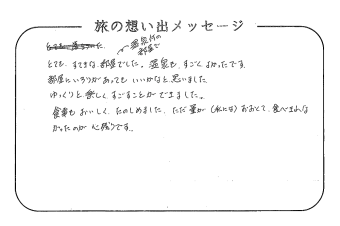 旅の想い出メッセージ
温泉付の
部屋で
とても、すてきな部屋でした。温泉も、すごくよかったです。
部屋にいろりがあってもいいかなと思いました。
ゆっくりと楽しくすごすことができました。
食事もおいしく、たのしめました。ただ量が(私には)おおくて、食べきれな
かったのが心残りです。